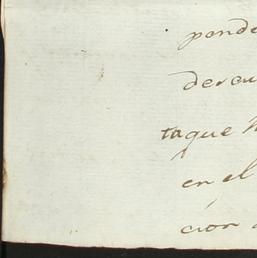 ponde
derecu
taque
en el
cion